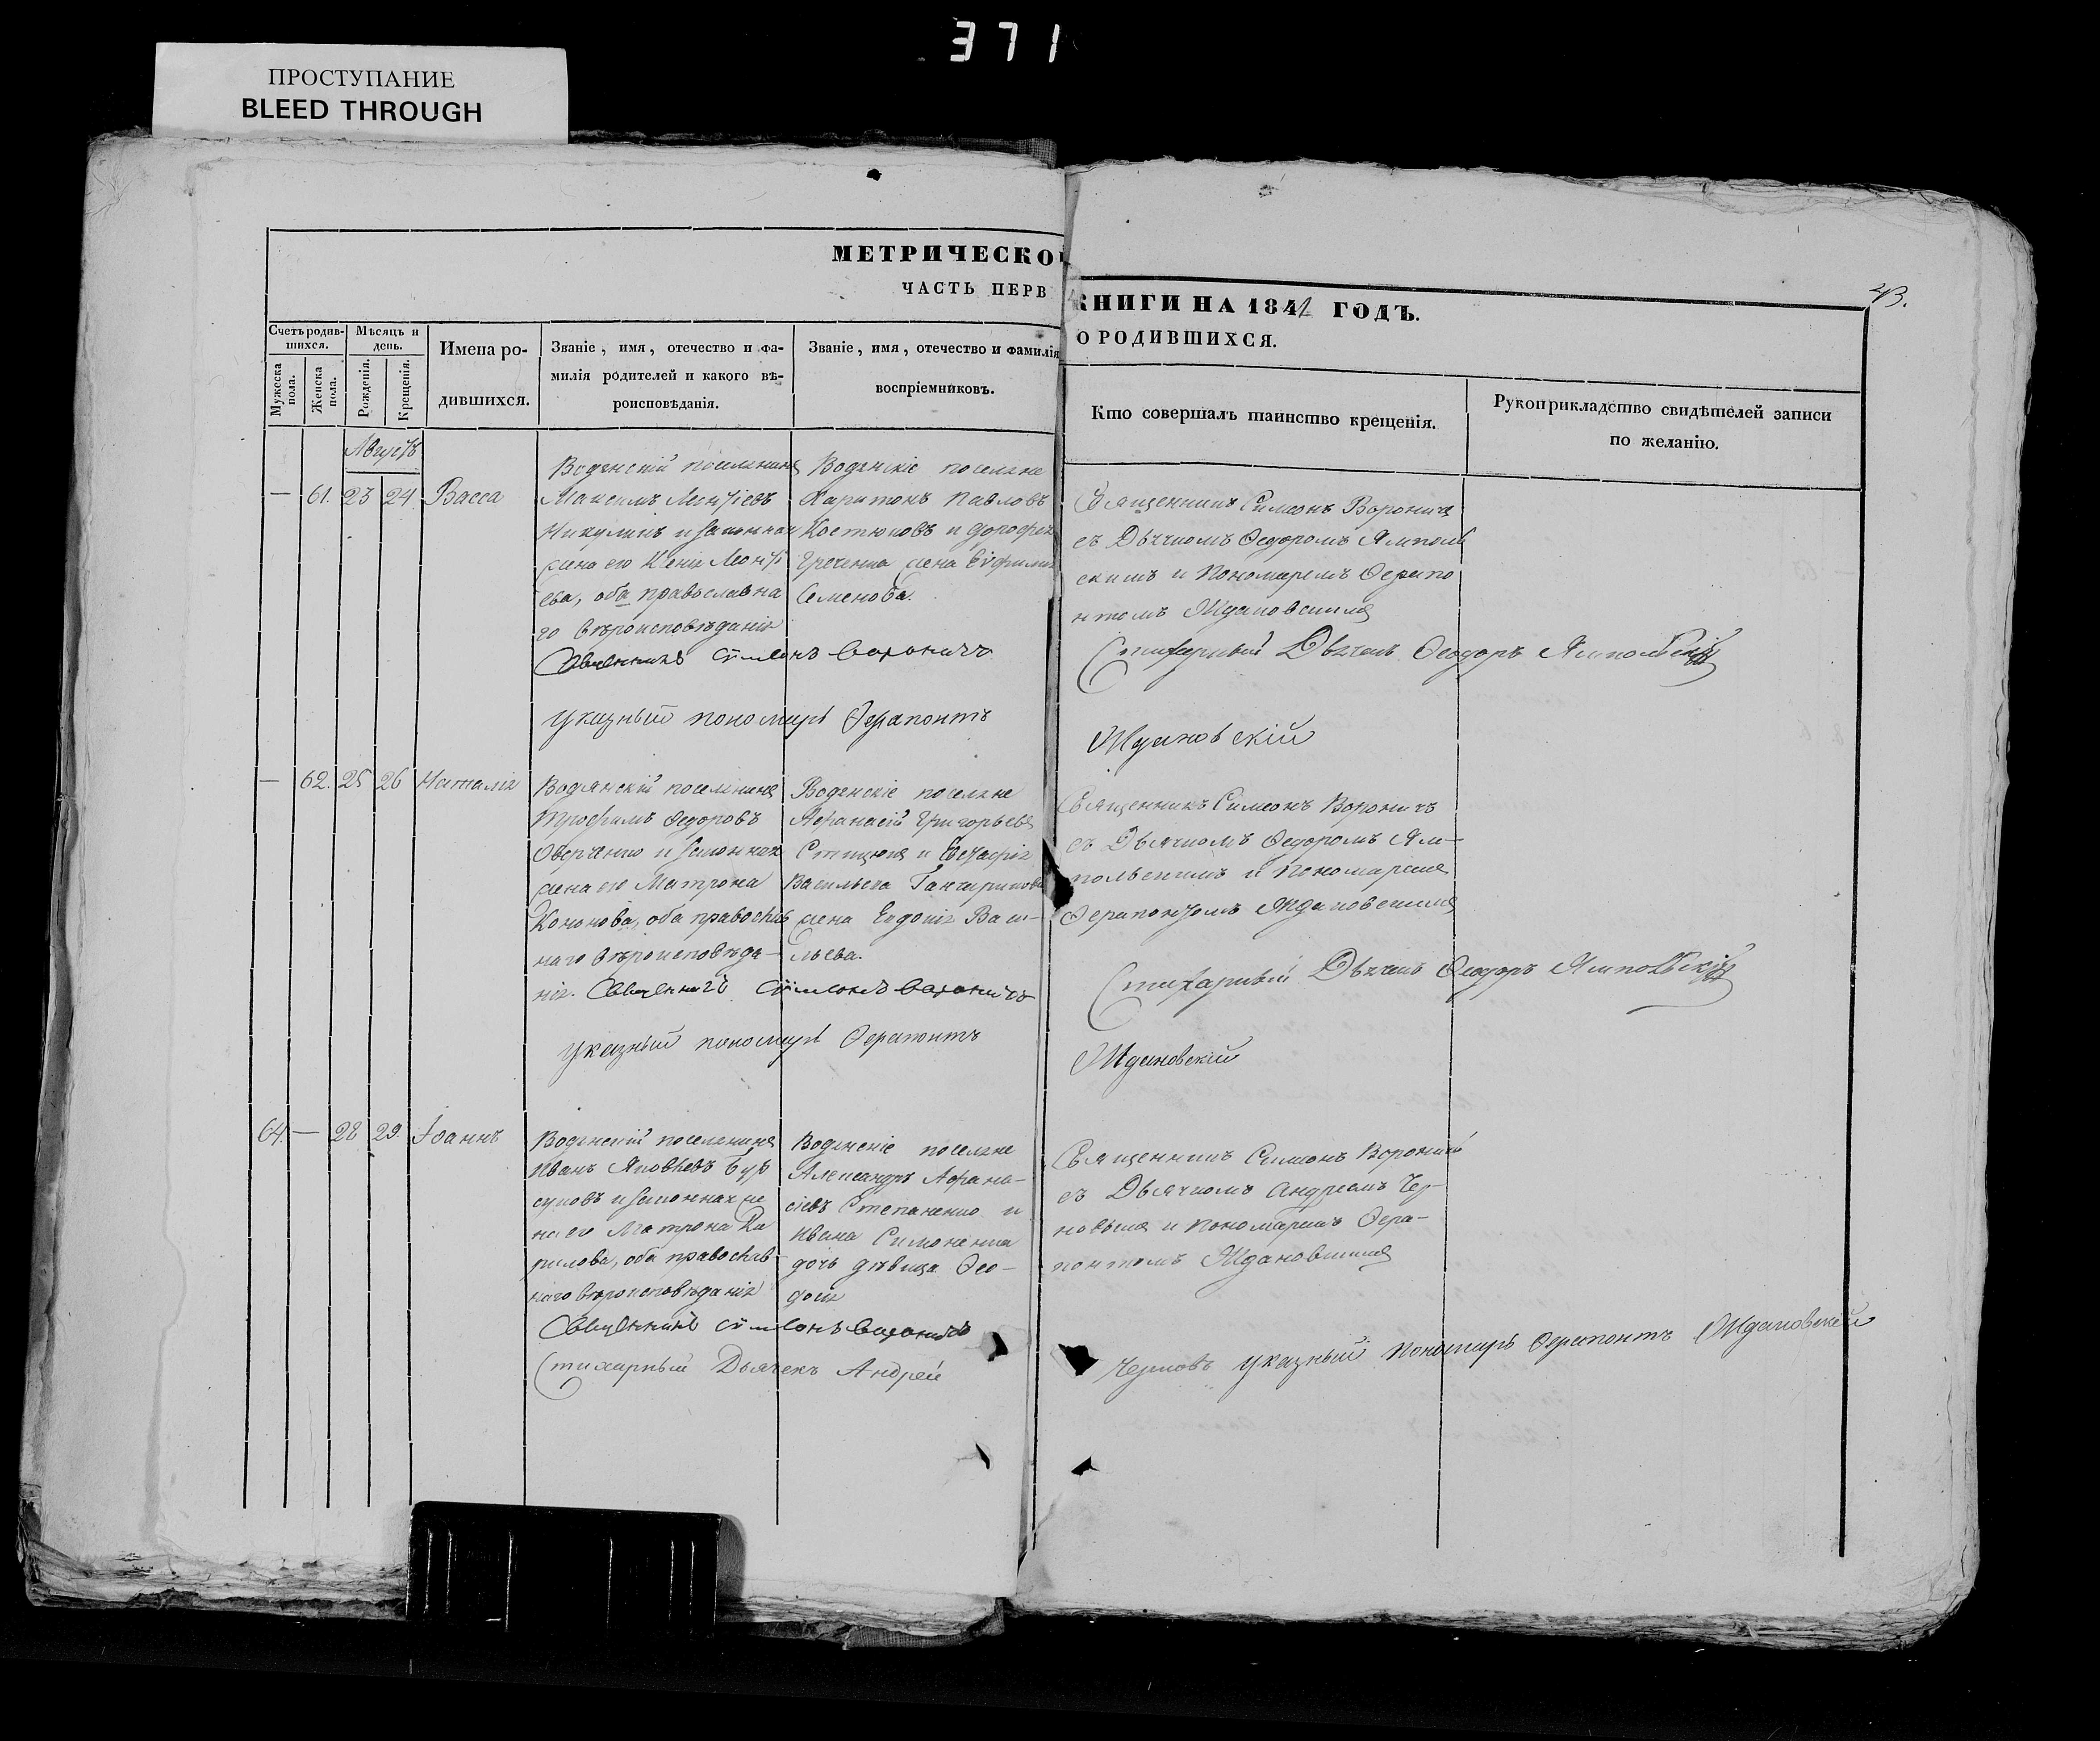 371
ПРОСТУПАНИЕ
BLEED THROUGH
МЕТРИЧЕСКО
ЧАСТЬ ПЕРВ
КНИГИ НА 184 ГОДЪ.
О РОДИВШИХСЯ.
Счетъ родив-
шихся.
Мужеска
пола.
Женска
пола.
Мѣсяцъ и
день.
Рожденія.
Крещенія.
Имена ро-
дившихся.
Званіе, имя, отечество и фа-
милія родителей и какого вѣ-
роисповѣданія.
Званіе, имя, отечество и фамилія
воспріемниковъ.
Кто совершалъ таинство крещенія.
Рукоприкладство свидѣтелей записи
по желанію.
Августъ
— 61. 23 24. Васса
Водянскій поселянинъ
Максимъ Леонтіевъ
Никулинъ и законная
жена его Ксенія Леонті
ева, оба православна
го вѣроисповѣданія
Водянскіе поселяне
Харитонъ Павловъ
Костюковъ и Дорофея
Гречение жена Евфимія
Семенова.
Священникъ Симеонъ Вороничъ
съ Дьячкомъ Ѳедоромъ Ямполь
скимъ и Пономаремъ Ѳерапо
нтомъ Ждановскимъ
Священникъ Симеонъ Вороничъ
Стихарный Дьячекъ Ѳеодоръ Ямпольскій
Указный пономарь Ѳерапонтъ
Ждановскій
— 62. 25 26 Наталія
Водянскій поселянинъ
Трофимъ Ѳедоровъ
и законная
жена его Матрона
Кононова, оба православ
наго вѣроисповѣда-
нія.
Водянскіе поселяне
Афанасій Григорьевъ
и
Васильева
жена Евдокія Васи-
льева.
Священникъ Симеонъ Вороничъ
съ Дьячкомъ Ѳедоромъ Ям-
польскимъ и Пономаремъ
Ѳерапонтомъ Ждановскимъ
Священникъ Симеонъ Вороничъ
Стихарный Дьячекъ Ѳеодоръ Ямпольскій
Указный пономарь Ѳерапонтъ
Ждановскій
64. — 28 29. Іоаннъ
Водянскій поселянинъ
Иванъ Яковлевъ Бур
суковъ и законная же
на его Матрона Ки
рилова, оба православ-
наго вѣроисповѣданія
Водянскіе поселяне
Александръ Афана-
сіевъ Степаненко и
Ивана Симоненка
дочь дѣвица Ѳео-
досія
Священникъ Симеонъ Вороничъ
съ Дьячкомъ Андреемъ Чер-
новымъ и Пономаремъ Ѳера-
понтомъ Ждановскимъ
Священникъ Симеонъ Вороничъ
Стихарный Дьячекъ Андрей
Черновъ указный Пономарь Ѳерапонтъ Ждановскій